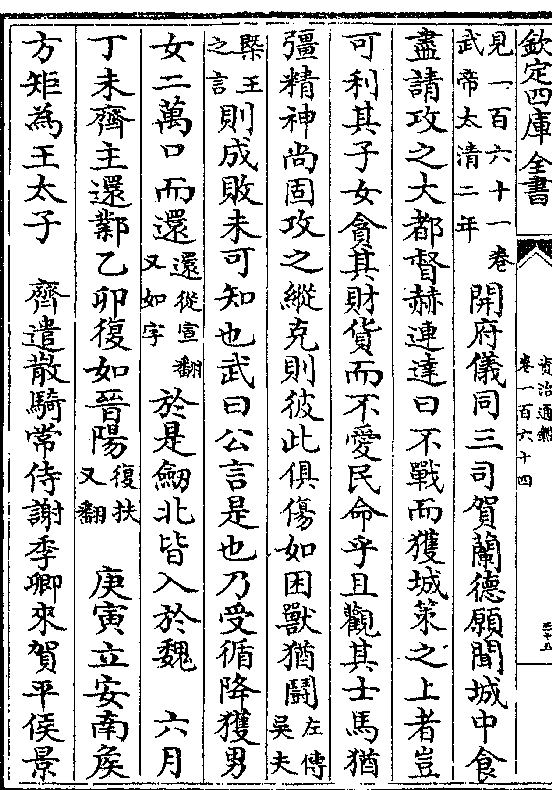 欽定四庫全書
資治通鑑
卷一百六十四
三十五
見一百六十一卷武帝太清二年開府儀同三司賀蘭德願聞城中食
盡請攻之大都督赫連達曰不戰而獲城策之上者豈
可利其子女貪其財貨而不愛民命乎且觀其士馬猶
彊精神尚固攻之縱克則彼此俱傷如困獸猶鬭左傳吳夫
槩王之言則成敗未可知也武曰公言是也乃受循降獲男
女二萬口而還還從宣翻又如字於是劒北皆入於魏　六月
丁未齊主還鄴乙卯復如晉陽復扶又翻　庚寅立安南矦
方矩為王太子　齊遣散騎常侍謝季卿來賀平侯景